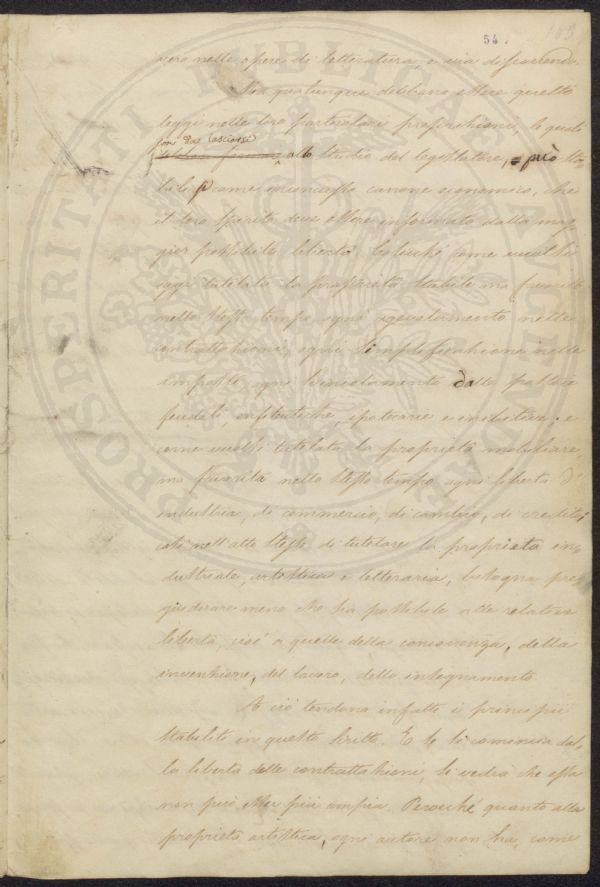 54. 103
vero nelle opere di letteratura, e via discorrendo.
Ma qualunque debbano essere queste
leggi nelle loro particolari prescrizioni, le quali
son da lasciarsi
allo studio del legislatore, può sta-
bilirsi come inconcusso canone economico, che
il loro spirito deve essere informato dalla mag-
gior possibile libertà. Cosicchè come vuolsi
oggi tutelata la proprietà stabile ma favorito
nello stesso tempo ogni agevolamento nelle
contrattazioni, ogni semplificazione nelle
imposte, ogni svincolamento dalle pastoie
feudali, enfiteutiche, ipotecarie e industriali; e
come vuolsi tutelata la proprietà mobiliare
ma favorita nello stesso tempo ogni libertà d'
industria, di commercio, di cambio, di credito;
così nell'atto stesso di tutelare la proprietà in-
dustriale, artistica e letteraria, bisogna pre-
giudicare meno che sia possibile alle relative
libertà, cioè a quelle della concorrenza, della
invenzione, del lavoro, dello insegnamento.
A ciò tendono infatti i principii
stabiliti in questo scritto. E se si comincia dal-
la libertà delle contrattazioni, si vedrà che essa
non può esser più ampia. Perocchè quanto alla
proprietà artistica, ogni autore non ha, come
PROSPERITATI PUBLICAE AUGENDAE